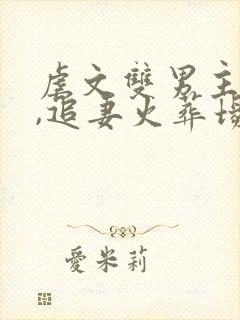 虐文雙男主
,追妻火葬場
愛米莉